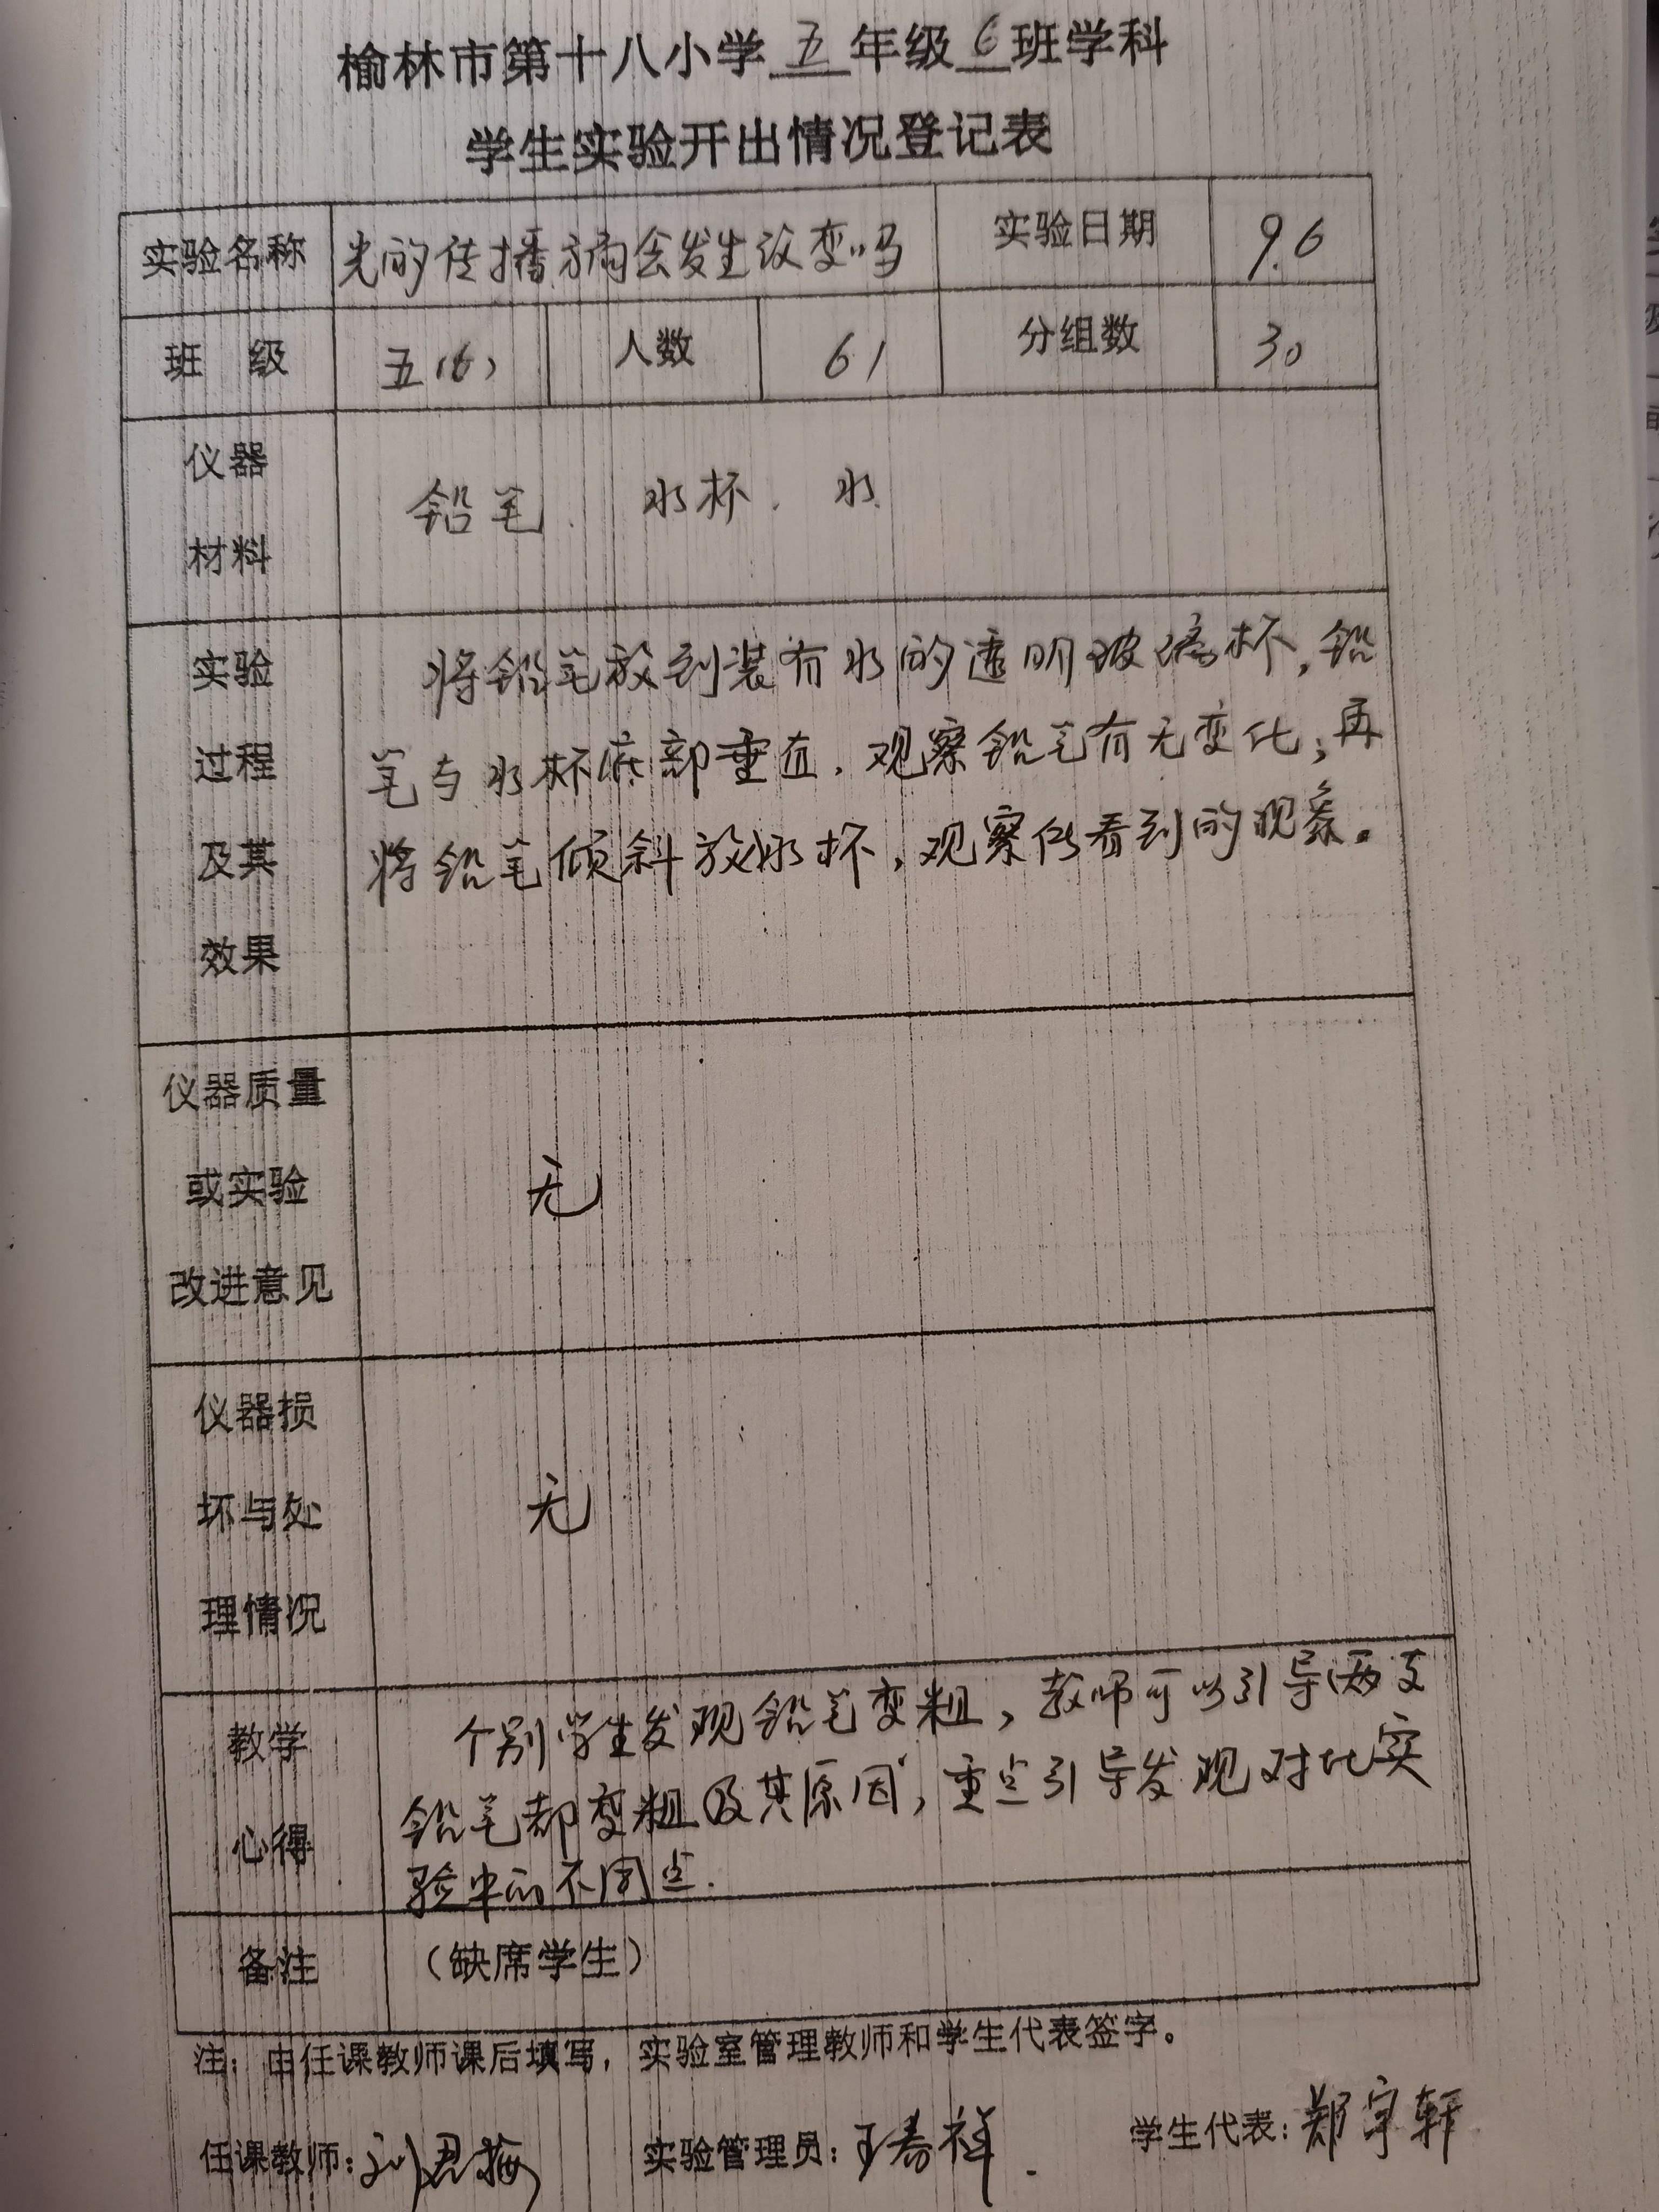 榆林市第十八小学五年级6班学科
学生实验开出情况登记表
实验名称 光的传播方向会发生改变吗 实验日期 9.6
班 级 五(6) 人数 61 分组数 30
仪器
材料
铅笔. 水杯. 水.
实验
过程
及其
效果
将铅笔放到装有水的透明玻璃杯,铅
笔与水杯底部垂直.观察铅笔有无变化;再
将铅笔倾斜放水杯,观察所看到的现象。
仪器质量
或实验
改进意见
无
仪器损
坏与处
理情况
无
教学
心得
个别学生发现铅笔变粗,教师可以引导两支
铅笔都变粗及其原因,重点引导发现对比实
验中的不同点.
备注 (缺席学生)
注:由任课教师课后填写,实验室管理教师和学生代表签字。
任课教师:刘君梅 实验管理员:王春祥. 学生代表:郑宇轩